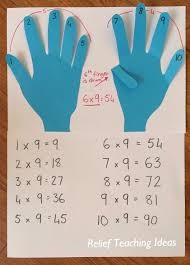 5 4
1 2 3 4 5 7 8 9 10
6th finger
is down
6x9=54
1 x 9 = 9
2 x 9 = 18
3 x 9 = 27
4 x 9 = 36
5 x 9 = 45
6 x 9 = 54
7 x 9 = 63
8 x 9 = 72
9 x 9 = 81
10 x 9 = 90
Relief Teaching Ideas